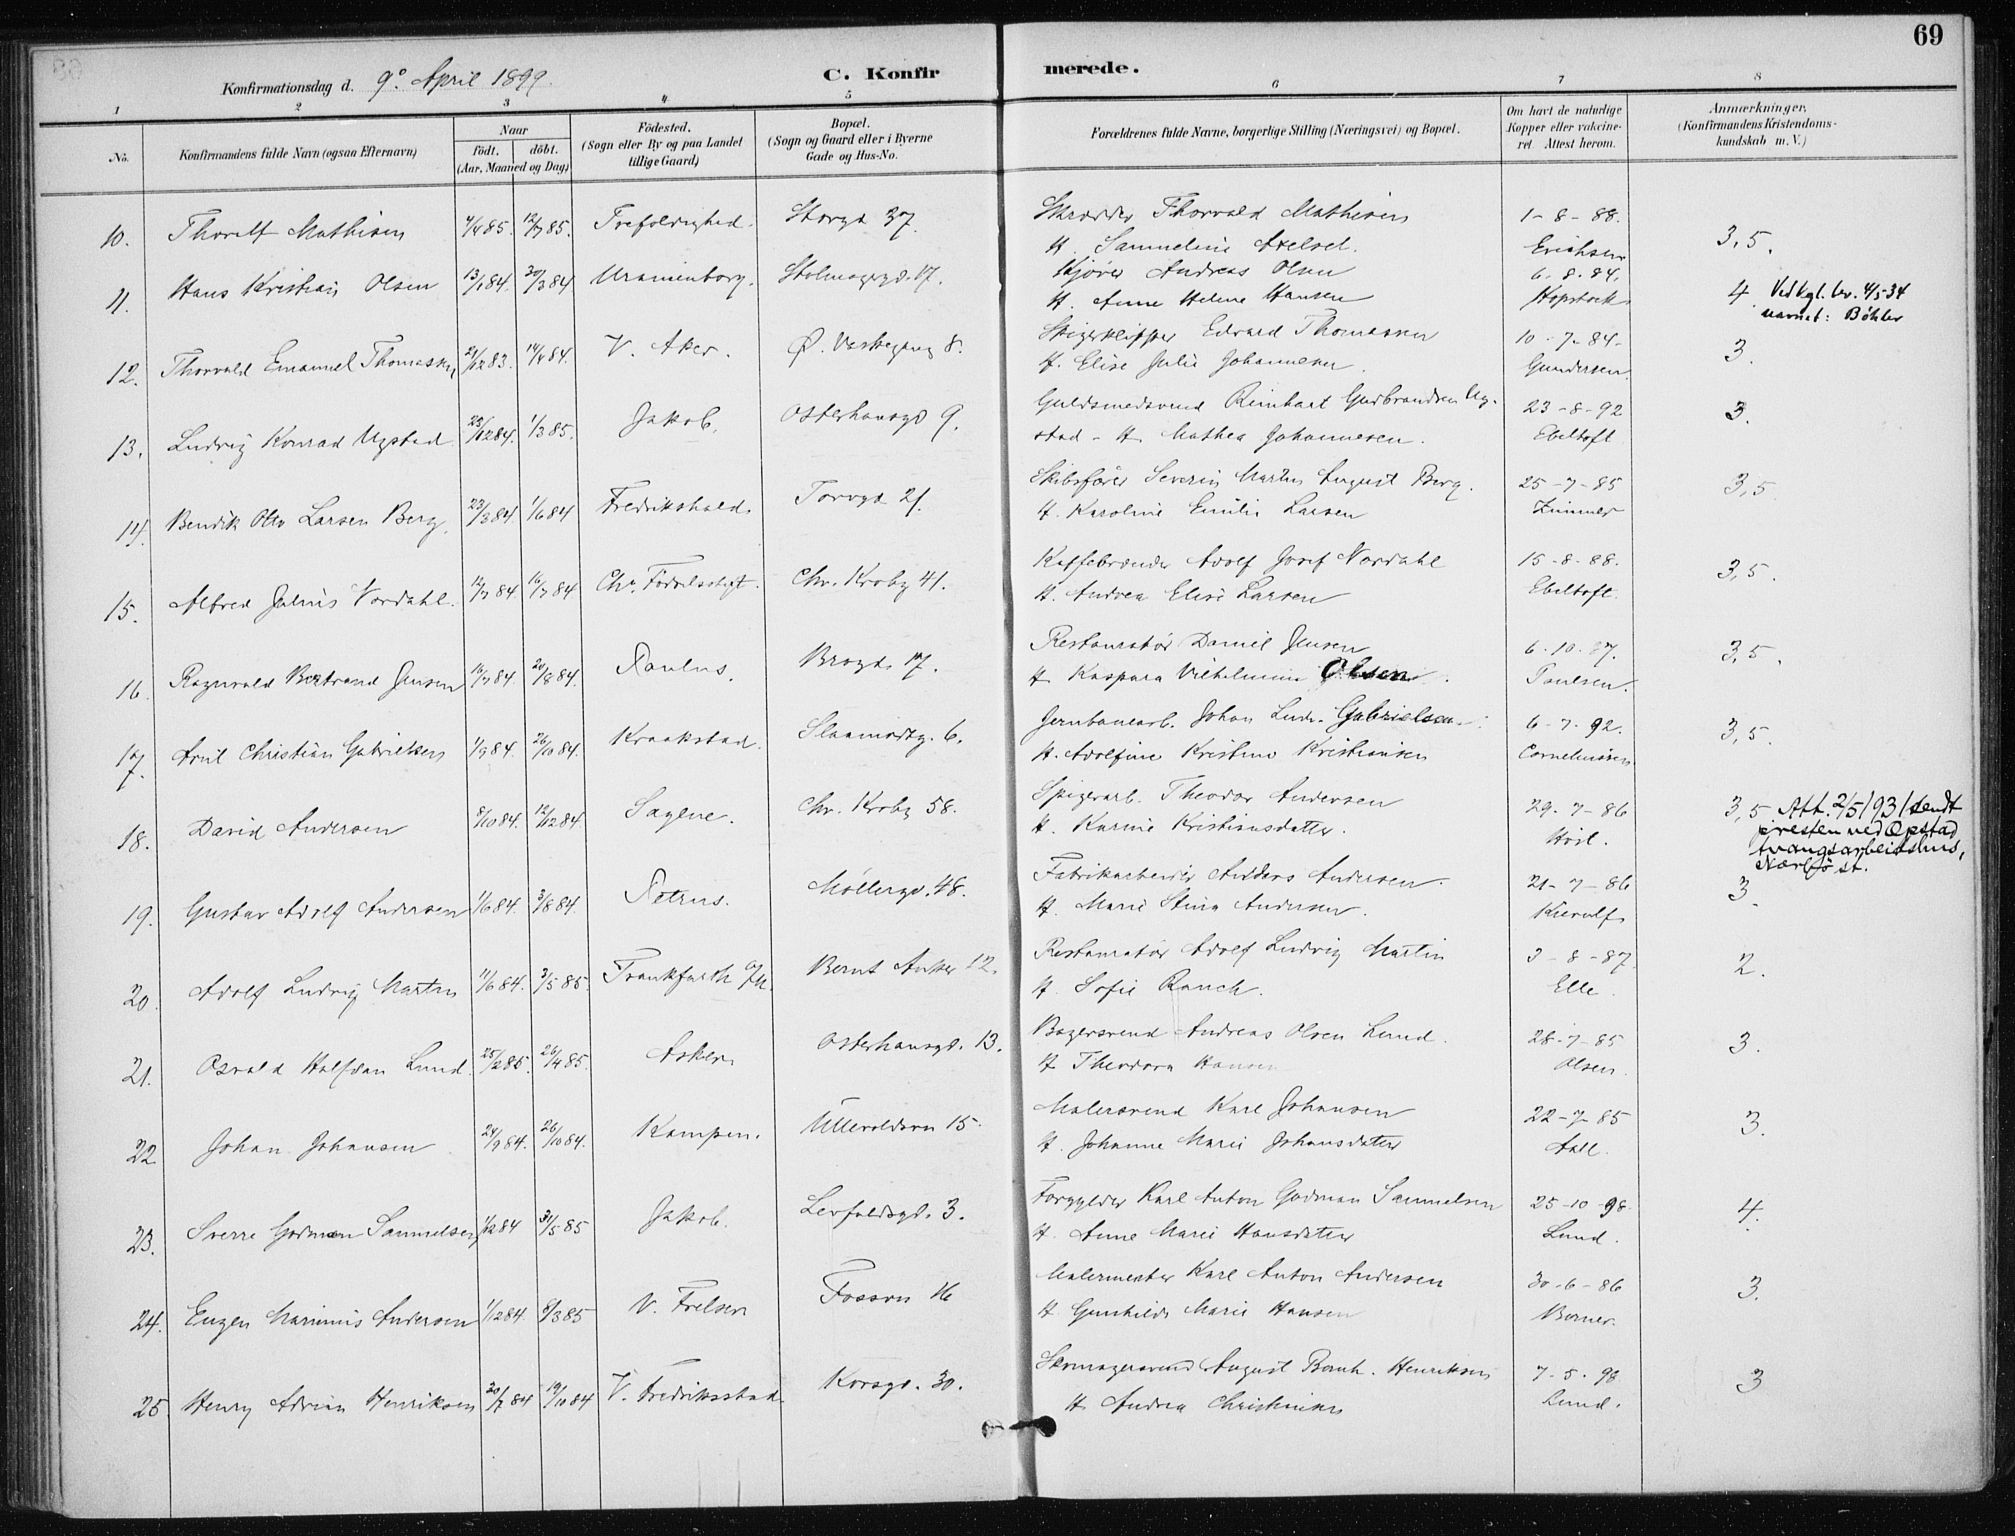 69
Konfirmationsdag d. 9º April 1899.
C. Konfirmerede.
1 2 3 4 5 6 7 8
No.
Konfirmandens fulde Navn (ogsaa Efternavn)
Naar
födt. döbt.
(Aar, Maaned og Dag)
Födested.
(Sogn eller By og paa Landet
tillige Gaard)
Bopæl.
(Sogn og Gaard eller i Byerne
Gade og Hus-No.
Forældrenes fulde Navne, borgerlige Stilling (Næringsvei) og Bopæl.
Om havt de naturlige
Kopper eller vakcine-
ret. Attest herom.
Anmærkninger.
(Konfirmandens Kristendoms-
kundskab m. V.)
10. Thorolf Mathisen 4/4 85. 12/7 85. Trefoldighed. Storgd 37. Skrædder Thorvald Mathisen 1-8-88. 3,5.
H. Sameline Axelsd. Erichsen
11. Hans Kristian Olsen 13/1 84. 30/3 84 Uranienborg. Stolmagergd. 17. Kjører Andreas Olsen 6-8-84. 4. Ved kgl. bev. 4/5-34
H. Anne Helene Hansen Hopstock navnet: Böhler
12. Thorvald Emanuel Thomassen 21/12 83. 14/4 84. V. Aker. Ø. Vaskegang 8. Spigerklipper Edvard Thomassen 10-7-84. 3.
H. Elise Julie Johannesen. Gundersen.
13. Ludvig Konrad Ugstad 25/12 84. 1/3 85. Jakob. Osterhausgd 9. Guldsmedsvend Reinhart Gudbrandsen Ug- 23-8-92 3.
stad - H. Mathea Johannesen. Ebeltoft
14. Bendik Otto Larsen Berg. 23/3 84. 1/6 84 Fredrikshald. Torvgd 21. Skibsfører Severin Martin August Berg. 25-7-85 3,5.
H. Karoline Emilie Larsen Zimmer
15. Alfred Julius Nordahl. 12/7 84. 16/7 84 Chr. Födselsstift. Chr. Krohg 41. Kaffebrænder Adolf Josef Nordahl 15-8-88. 3,5.
H. Andrea Elise Larsen Ebeltoft.
16. Ragnvald Bertrand Jensen 16/7 84. 20/8 84. Paulus. Brogd. 17. Restauratør Daniel Jensen 6-10-87. 3,5.
H. Kaspara Vilhelmine Olsen. Poulsen.
17. Arvil Christian Gabrielsen 1/9 84. 26/10 84. Kraakstad. Slaamotg. 6. Jernbanearb. Johan Ludv. Gabrielsen 6-7-92. 3,5.
H. Adolfine Kristine Kristiansen Corneliussen
18. David Andersen 8/10 84. 12/12 84. Sagene. Chr. Krohg 58. Spigerarb. Theodor Andersen 29-7-86 3,5 Att. 2/5 1931 sendt
H. Karine Kristiansdatter. Höst. presten ved Opstad
tvangsarbeidshus,
Nærbø st.
19. Gustav Adolf Andersen 1/6 84. 3/8 84. Petrus. Möllergd. 48. Fabrikarbeider Anders Andersen. 21-7-86 3.
H. Marie Stina Andersen. Kierulf
20. Adolf Ludvig Martin 11/6 84. 3/5 85. Frankfurth a/M. Bernt Anker 12. Restauratør Adolf Ludvig Martin 3-8-87. 2.
H. Sofie Rauch. Elle.
21. Osvald Halfdan Lund. 25/2 85. 26/4 85. Asker. Osterhausgd. 13. Bagersvend Andreas Olsen Lund. 28-7-85 3.
H. Theodora Hansen Olsen.
22 Johan Johansen 24/9 84. 26/10 84. Kampen. Ullevoldsvn 15. Malersvend Karl Johansen 22-7-85 3.
H. Johanne Marie Johansdatter Aall.
23. Sverre Godman Samuelsen 1/12 84 31/5 85 Jakob. Leofoldsgd. 3. Forgylder Karl Anton Godman Samuelsen 25-10-98. 4.
H. Anne Marie Hansdatter Lund.
24. Eugen Marinius Andersen 1/12 84. 8/3 85 V. Frelsers Fossvn 16 Malermester Karl Anton Andersen 30-6-86 3.
H. Gunhilde Marie Hansen Borner.
25 Henry Adrian Henriksen 20/7 84 19/10 84 V. Fredriksstad. Korsgd. 30. Skomagersvend August Bernh. Henriksen 7-5-98 3
H. Andrea Christiansen Lund.